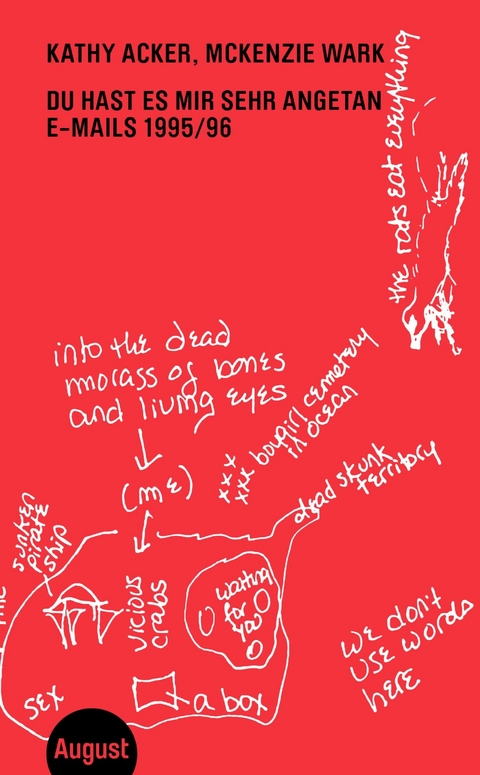 KATHY ACKER, MCKENZIE WARK
DU HAST ES MIR SEHR ANGETAN
E-MAILS 1995/96
the rats eat everything
into the dead
morass of bones
and living eyes
(me)
xxx
xxx boygirl cemetery
in ocean
dead skunk
territory
sunken
pirate
ship
vicious
crabs
waiting
for
you
we don't
use words
here
sex
a box
August